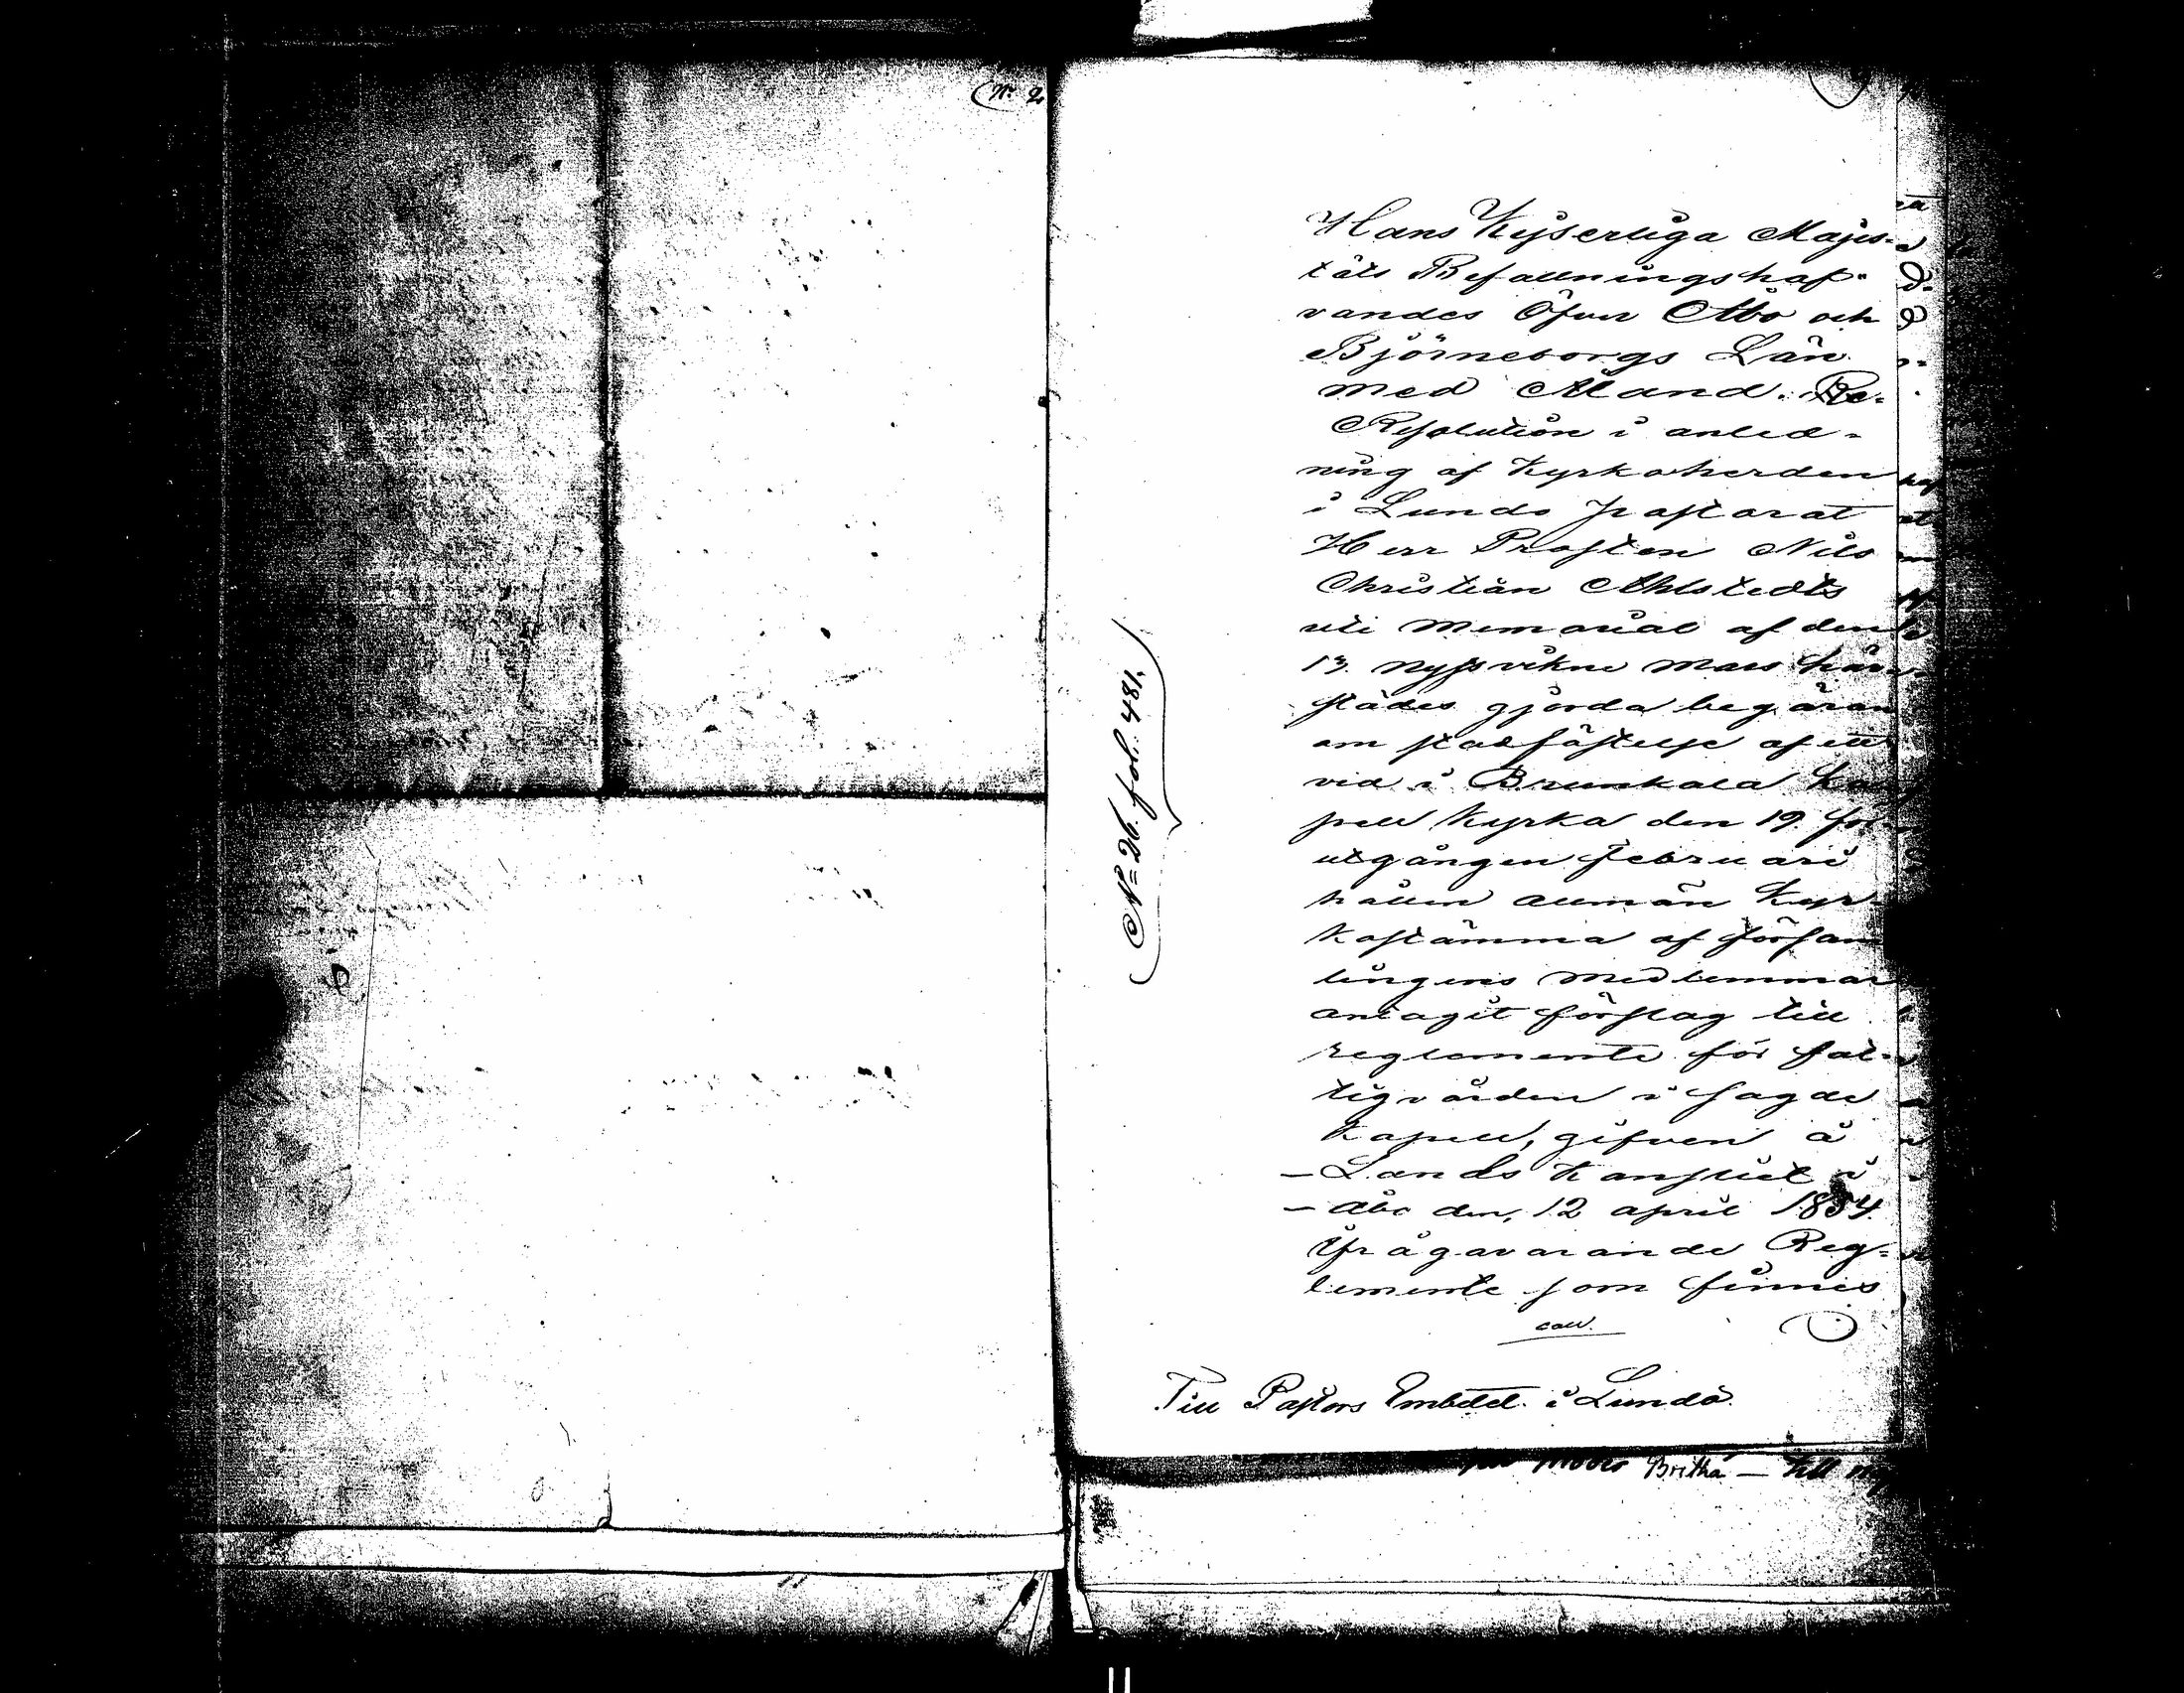 No. 2
Hans Kejserliga Majes=
täts Befallningshaf=
vandes Öfver Åbo och
Björneborgs Län
med Åland. Re=
Resolution i anled=
ning af Kyrkoherden
i Lundo pastorat
Herr Prosten Nils
Christian Ahlstedts
uti memorial af den
13. nyssvikne mars här
städes gjorda begäran
om stadfästelse af ett
vid i Brunkala Ka
pell Kyrka den 19. för
utgången februari
hållen allmän Kyr
kostämma af försam
lingens medlemmar
antagit förslag till
reglemente för fat=
tigvården i sagde
Kapell, gifven å
— Lands Kansliet i
— Åbo den, 12 april 1854.
Ifrågavarande Reg=
lemente som finnes
coll.
Till Pastors Embetet i Lundo.
No= 26. fol. 481.
Britha — till